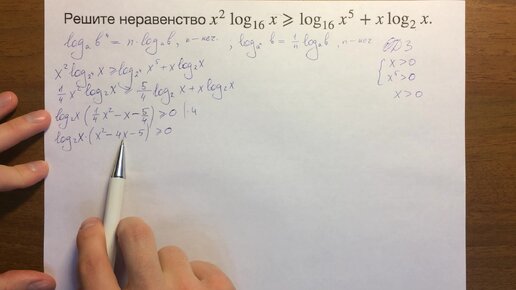 Решите неравенство x² log₁₆ x ⩾ log₁₆ x⁵ + x log₂ x.
logₐ bⁿ = n·logₐ b, n-неч. , logₐⁿ b = 1/n logₐ b, n-неч. ОДЗ
x² log₂⁴ x ⩾ log₂⁴ x⁵ + x log₂ x { x>0
1/4 x² log₂ x ⩾ 5/4 log₂ x + x log₂ x x⁵>0
log₂ x (1/4 x² − x − 5/4) ⩾ 0 |·4 x>0
log₂ x·(x² − 4x − 5) ⩾ 0